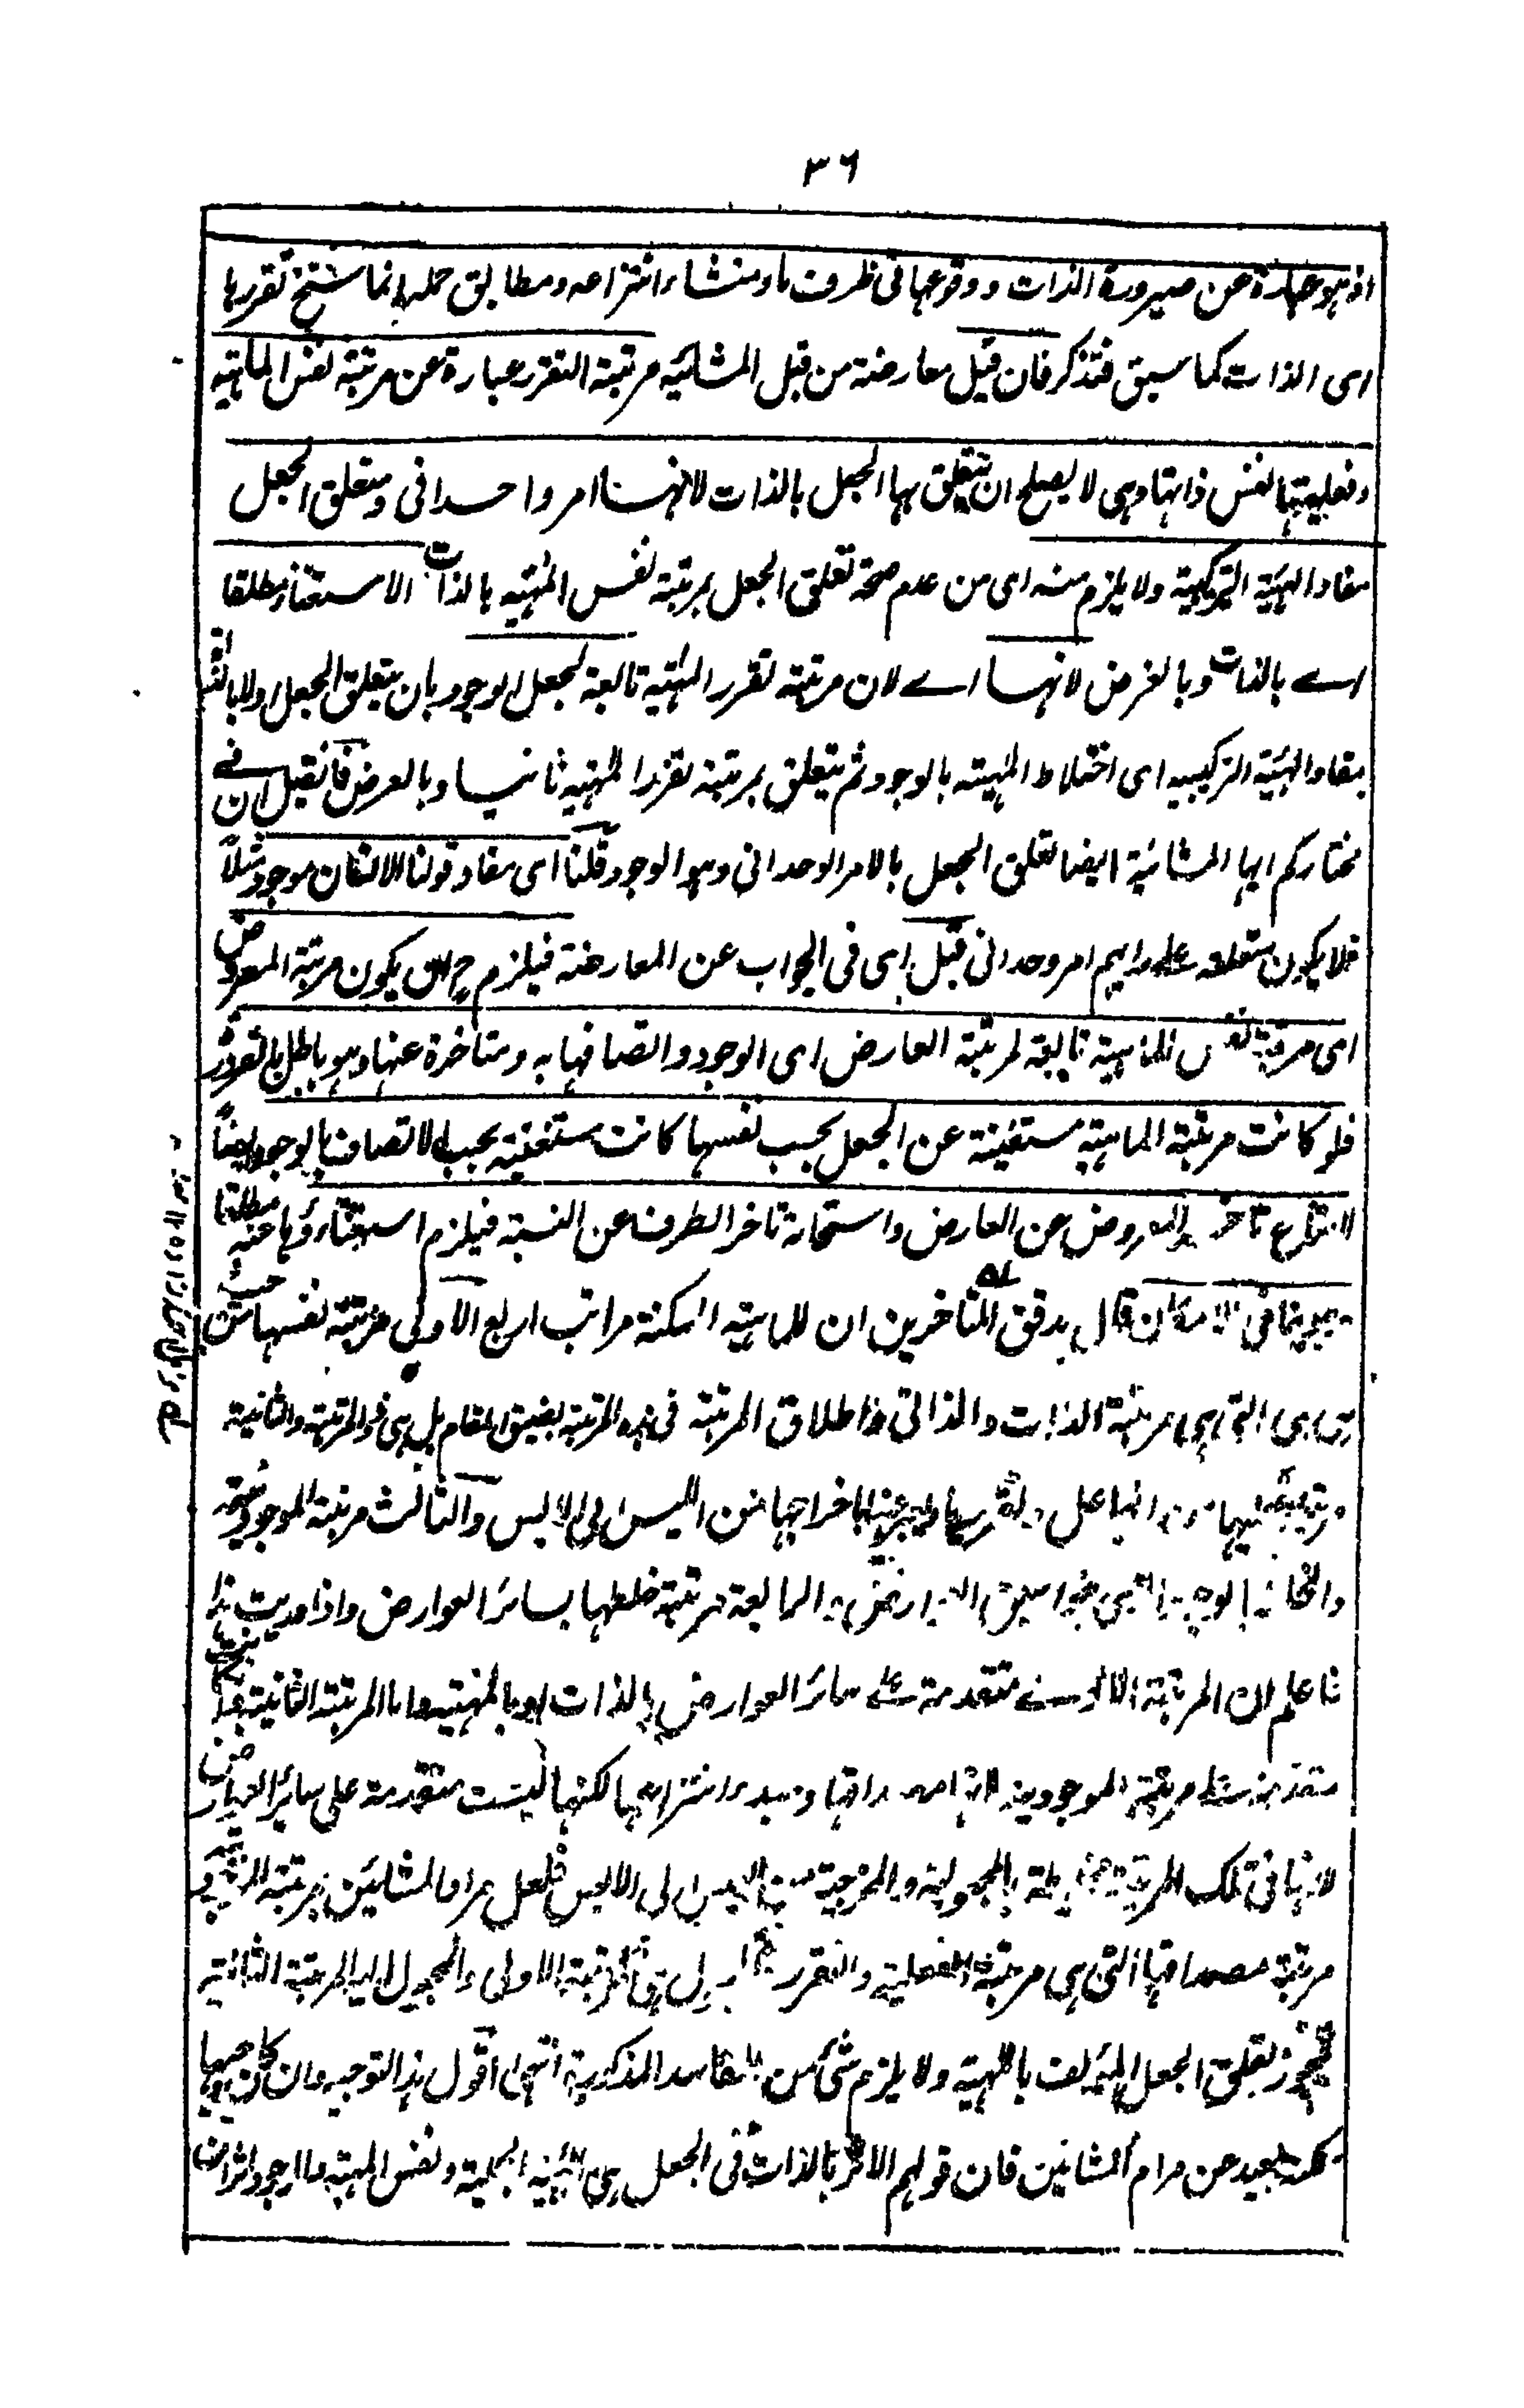 ٣٦
اذ هو عبارة عن صيرورة الذات ووقوعها فى ظرف ما ومنشاء انتزاعه ومطابق حمله انما سنخ تقررها
اى الذات كما سبق فتذكر فان قيل معارضة من قبل المشائيه مرتبة التقرر عبارة عن مرتبة نفس الماهية
وفعليتها نفس ذاتها وهى لا يصلح ان يتعلق بها الجعل بالذات لانها امر واحدانى ومتعلق الجعل
مفاد الهيئة التركيبية ولا يلزم منه اى من عدم صحة تعلق الجعل بمرتبة نفس المهية بالذات الاستغناء مطلقا
اے بالذات وبالعرض لانها اے لان مرتبة تقرر المهية تابعة لجعل الوجود بان يتعلق الجعل اولا بالذات
بمفاد الهئية التركيبيه اى اختلاط المهية بالوجود ثم يتعلق بمرتبة تقرر المهية ثانيا وبالعرض فان قيل ان فے
مختاركم ايها المشائية ايضا تعلق الجعل بالامر الوحدانى وهو الوجود قلنا اى مفاد قولنا الانسان موجود مثلاً
فلا يكون متعلقه على رايهم امر وحدانى قيل اى فى الجواب عن المعارضة فيلزم ح ان يكون مرتبة المعروض
اى مرتبة نفس الماهية تابعة لمرتبة العارض اى الوجود واتصافها به ومتأخرة عنها وهو باطل بالضرورة
فلو كانت مرتبة الماهية مستغنية عن الجعل بحسب نفسها كانت مستغنية بحسب الاتصاف بالوجود ايضاً
لامتناع تاخر المعروض عن العارض واستحالة تاخر الطرف عن النسبة فيلزم استغناؤها عنه مطلقا
وهو ينافى الامكان قال مدقق المتأخرين ان للماهية الممكنة مراتب اربع الاولى مرتبة نفسها من حيث
هى هى التى هى مرتبة الذات والذاتى واطلاق المرتبة فى هذه المرتبة بضيق المقام بل هى ذو المرتبة والثانية
باخراجها من الليس الى الايس والثالث مرتبة الموجودية
والرابعة مرتبة خلطها بسائر العوارض واذا دريت هذا
فاعلم ان المرتبة الاولے متقدمة علے سائر العوارض بالذات او بالمهية واما المرتبة الثانية
متقدمة علے مرتبة الموجودية لانها مصداقها ومبدء انتزاعها لكنها ليست متقدمة على سائر العوارض
لانها فى تلك المرتبة بالمجعولية والمخرجية من الليس الى الايس فلعل مراد المشائين بمرتبة
مرتبة مصداقها التى هى مرتبة الفعلية والتقرر المرتبة الاولى والمجعول اليه المرتبة الثانية
فيجوز تعلق الجعل المؤلف بالمهية ولا يلزم شئ من المفاسد المذكورة انتهى اقول هذا التوجيه وان كان وجيها
لكنه بعيد عن مرام المشائين فان قولهم الاثر بالذات فى الجعل هى الهيئة الحملية ونفس المهية والوجود اثران